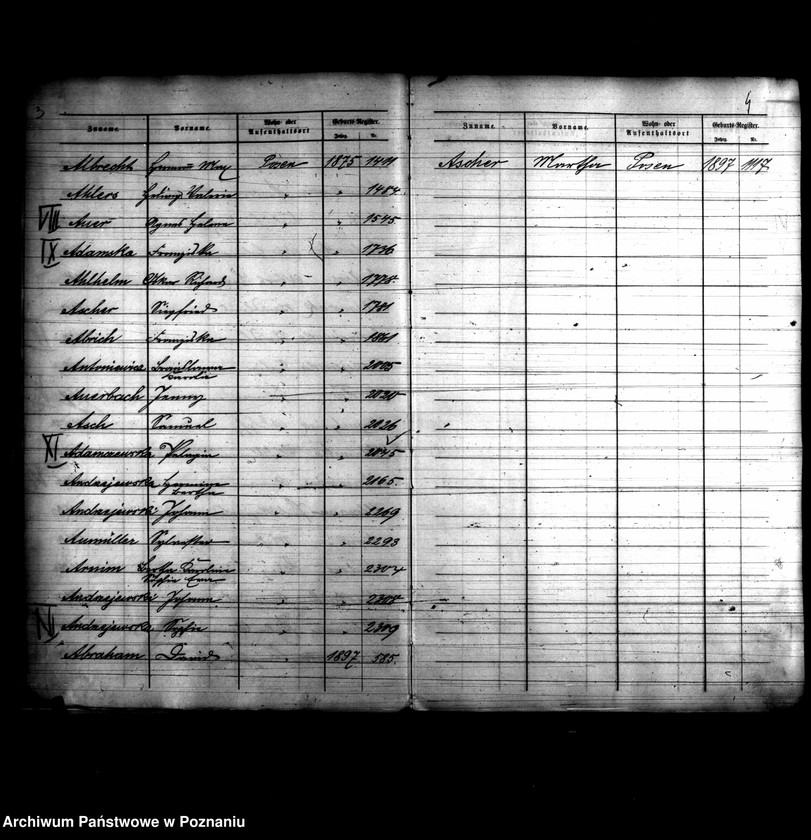 3
Zuname. Vorname. Wohn- oder Aufenthaltsort Geburts-Register. Jahrg. Nr.
Albrecht Max Posen 1875 1491
Ahlers 1484
VIII Auer Agnes Helene " " 1545
IX Adamska Franziska " " 1736
Ahlhelm Oskar Richard " " 1778
Ascher Siegfried " " 1781
Albrich Franziska " "
Antoniewicz " " 2005
Auerbach Jenny " " 2020
Asch Samuel " " 2026
XI Adamczewska Pelagia " " 2045
Andrzejewska Bertha " " 2165
Andrzejewski Johann " " 2269
Aumüller Sylvester " " 2293
Arnim Bertha Karoline Sophie Emma " " 2304
Andrzejewski Johann " "
Andrzejewska Sophie " " 2309
Abraham David " 1897 585.
4
Zuname. Vorname. Wohn- oder Aufenthaltsort Geburts-Register. Jahrg. Nr.
Ascher Martha Posen 1897 1117
Archiwum Państwowe w Poznaniu